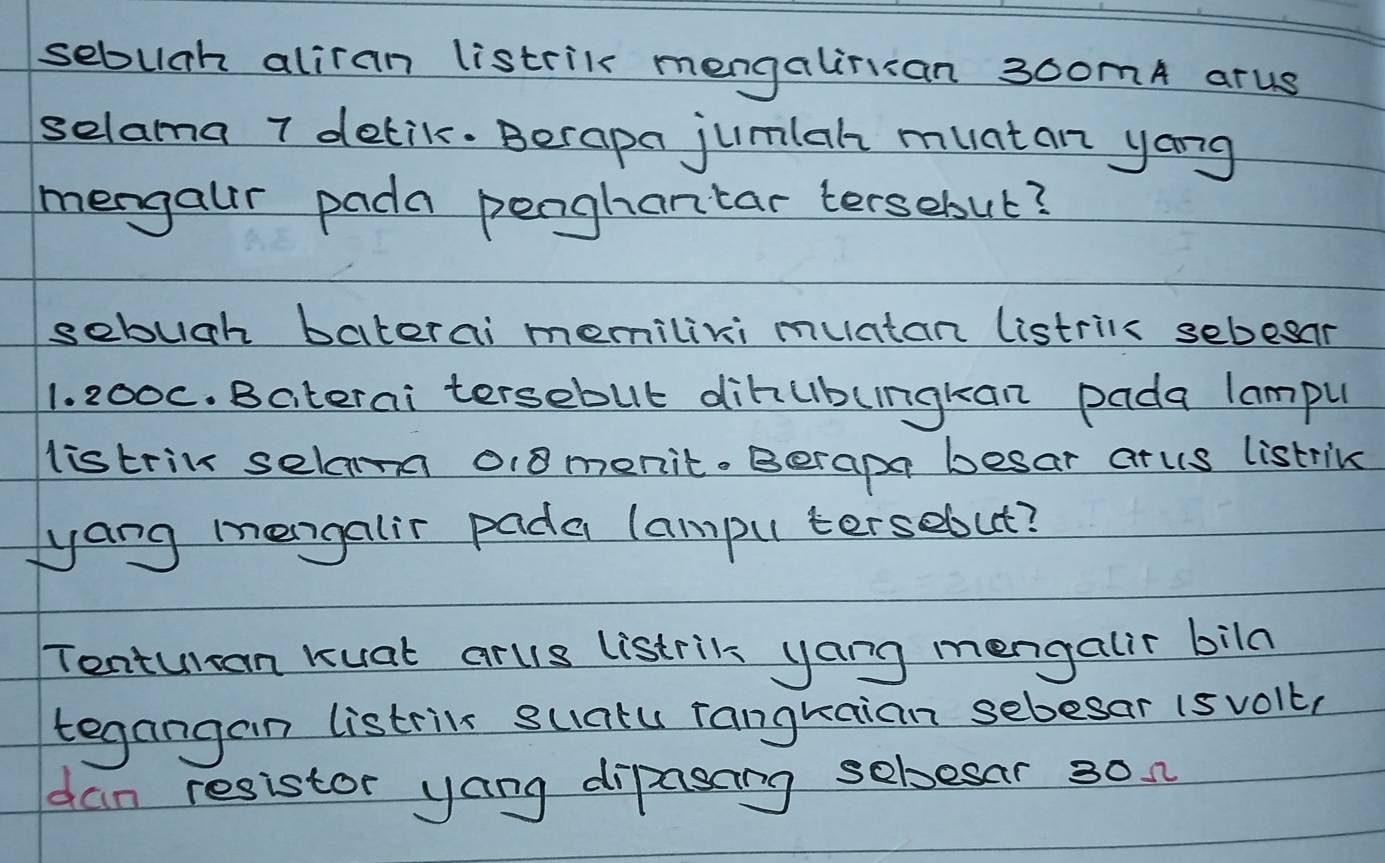 sebuah aliran listrik mengalirkan 300mA arus
selama 7 detik. Berapa jumlah muatan yang
mengalir pada penghantar tersebut?
sebuah baterai memiliki muatan listrik sebesar
1.200c. Baterai tersebut dihubungkan pada lampu
listrik selama 0,8 menit. Berapa besar arus listrik
yang mengalir pada lampu tersebut?
Tentukan kuat arus listrik yang mengalir bila
tegangan listrik suatu rangkaian sebesar 15 volt,
dan resistor yang dipasang sebesar 30 Ω